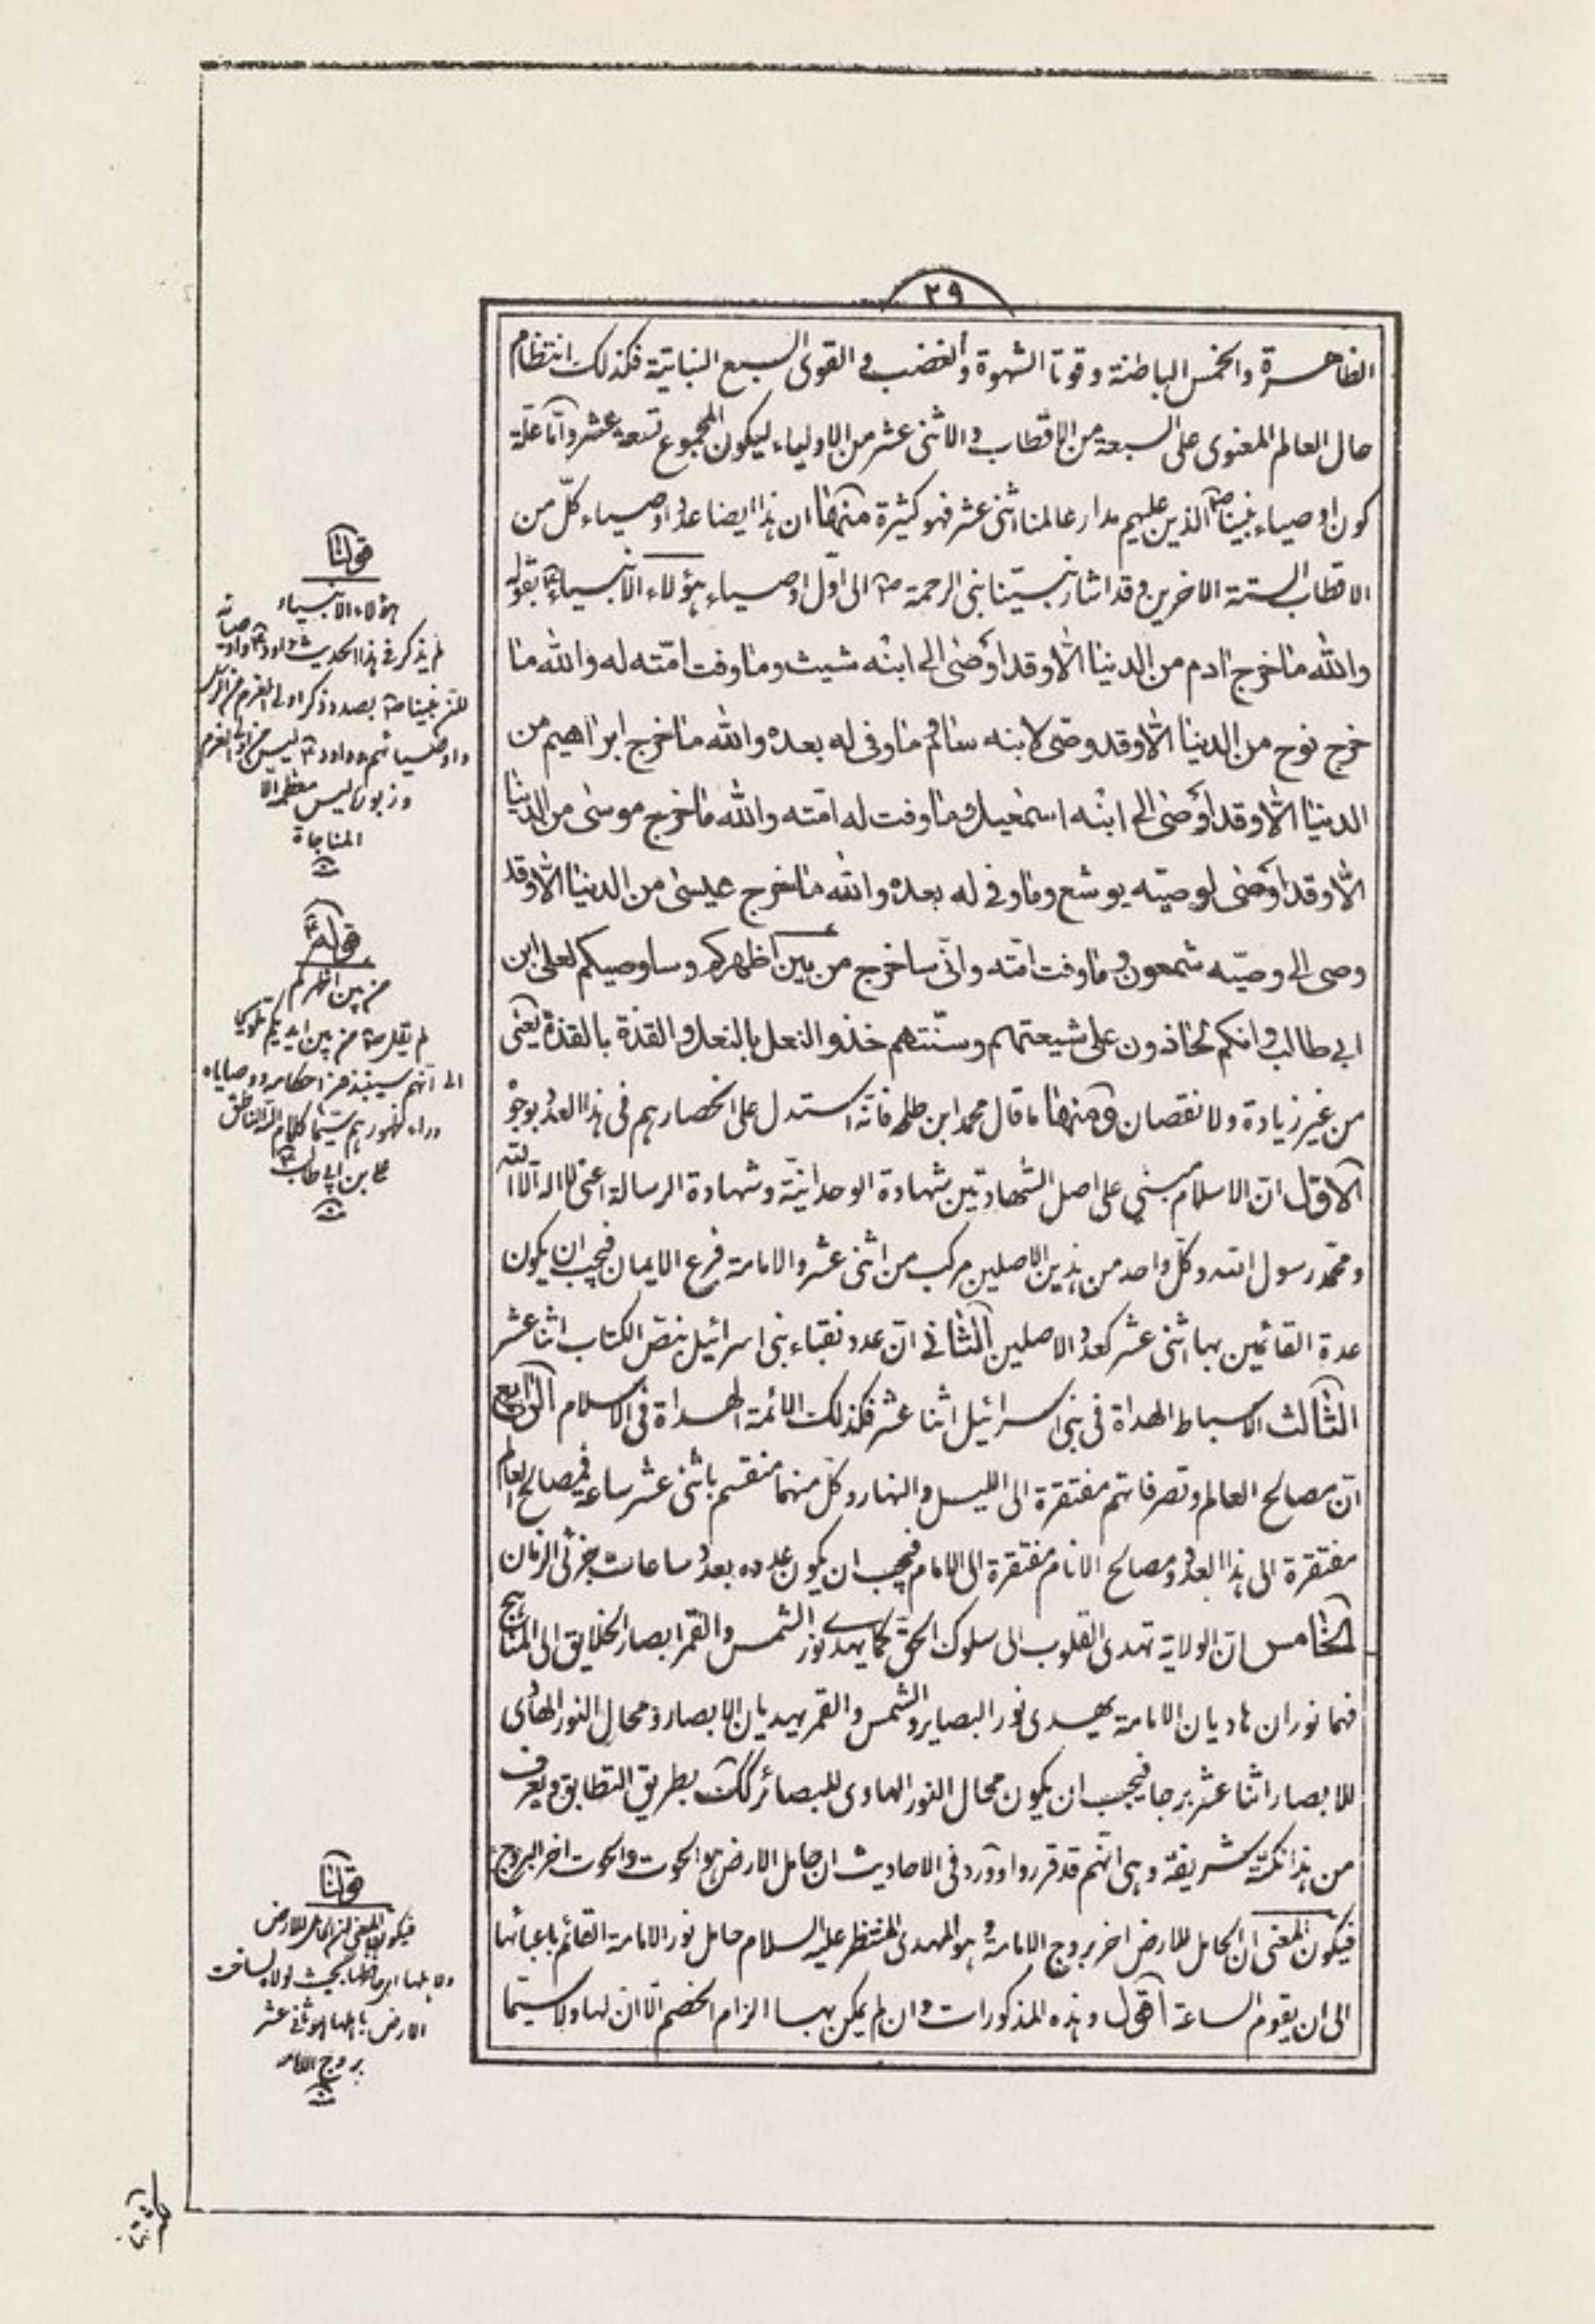 ٢٩
الظاهرة والخمس الباطنة وقوتا الشهوة والغضب و القوى السبع النباتية فكذلك انتظام
حال العالم المعنوى على السبعة من الاقطاب والاثنى عشر من الاولياء ليكون المجموع تسعة عشر واما علة
كون اوصياء نبينا ص الذين عليهم مدار عالمنا اثنى عشر فهو كثيرة منها ان هذا ايضا عدد اوصياء كل من
الاقطاب الستة الاخرين وقد اشار نبينا نبى الرحمة ص الى اول اوصياء هؤلاء الانبياء ع بقوله
والله ما خرج ادم من الدنيا الا وقد اوصى الى ابنه شيث وما وفت امته له والله ما
خرج نوح من الدنيا الا وقد وصى لابنه سام وما وفى له بعده والله ما خرج ابراهيم من
الدنيا الا وقد اوصى الى ابنه اسمعيل وما وفت له امته والله ما خرج موسى من الدنيا
الا وقد اوصى لوصيه يوشع وما وفى له بعده والله ما خرج عيسى من الدنيا الا وقد
وصى الى وصيه شمعون وما وفت امته وانى ساخرج من بين اظهركم وساوصيكم لعلى ابن
ابى طالب وانكم تحاذون على شيعتهم وسنتهم حذو النعل بالنعل و القذة بالقذة يعنى
من غير زيادة ولا نقصان و منها ما قال محمد ابن طلحه فانه استدل على انحصارهم فى هذا العدد بوجوه
الاول ان الاسلام مبنى على اصل الشهادتين شهادة الوحدانية وشهادة الرسالة اعنى لا اله الا الله
ومحمد رسول الله وكل واحد من هذين الاصلين مركب من اثنى عشر والامامة فرع الايمان فيجب ان يكون
عدة القائمين بها اثنى عشر كعدد الاصلين الثانى ان عدد نقباء بنى اسرائيل بنص الكتاب اثنا عشر
الثالث الاسباط الهداة فى بنى اسرائيل اثنا عشر فكذلك الائمة الهداة فى الاسلام الرابع
ان مصالح العالم وتصرفاتهم مفتقرة الى الليل والنهار وكل منهما منقسم باثنى عشر ساعة فمصالح العالم
مفتقرة الى هذا العدد ومصالح الانام مفتقرة الى الامام فيجب ان يكون عدده بعدد ساعات جزئى الزمان
الخامس ان الولاية تهدى القلوب الى سلوك الحق كما يهدى نور الشمس والقمر ابصار الخلايق الى المناهج
فهما نوران هاديان الامامة يهدى نور البصاير والشمس والقمر يهديان الابصار ومحال النور الهادى
للابصار اثنا عشر برجا فيجب ان يكون محال النور الهادى للبصائر كك بطريق التطابق ويعرف
من هذا نكتة شريفة وهى انهم قد قرروا وورد فى الاحاديث ان حامل الارض هو الحوت والحوت اخر البروج
فيكون المعنى ان الحامل للارض اخر بروج الامامة و هو المهدى المنتظر عليه السلام حامل نور الامامة القائم باعبائها
الى ان يقوم الساعة اقول وهذه المذكورات وان لم يمكن بها الزام الخصم الا ان لها ولا سيما
قولنا
هؤلاء الانبياء
لم يذكر فى هذا الحديث داود ع واوصيائه
لان نبينا ص بصدد ذكر اولى العزم من الرسل
واوصيائهم وداود ع ليس من اولى العزم
وزبوره ليس معظمه الا
المناجاة
قوله
من بين اظهركم
لم يقل ص من بين ايديكم
الى انهم سينبذون احكامه ووصاياه
وراء ظهورهم سيما كلام الله الناطق
على بن ابى طالب ع
قولنا
فيكون المعنى ان الحامل للارض
بحيث لولاه لساخت
الارض باهلها هو ثانى عشر
بروج الامامة